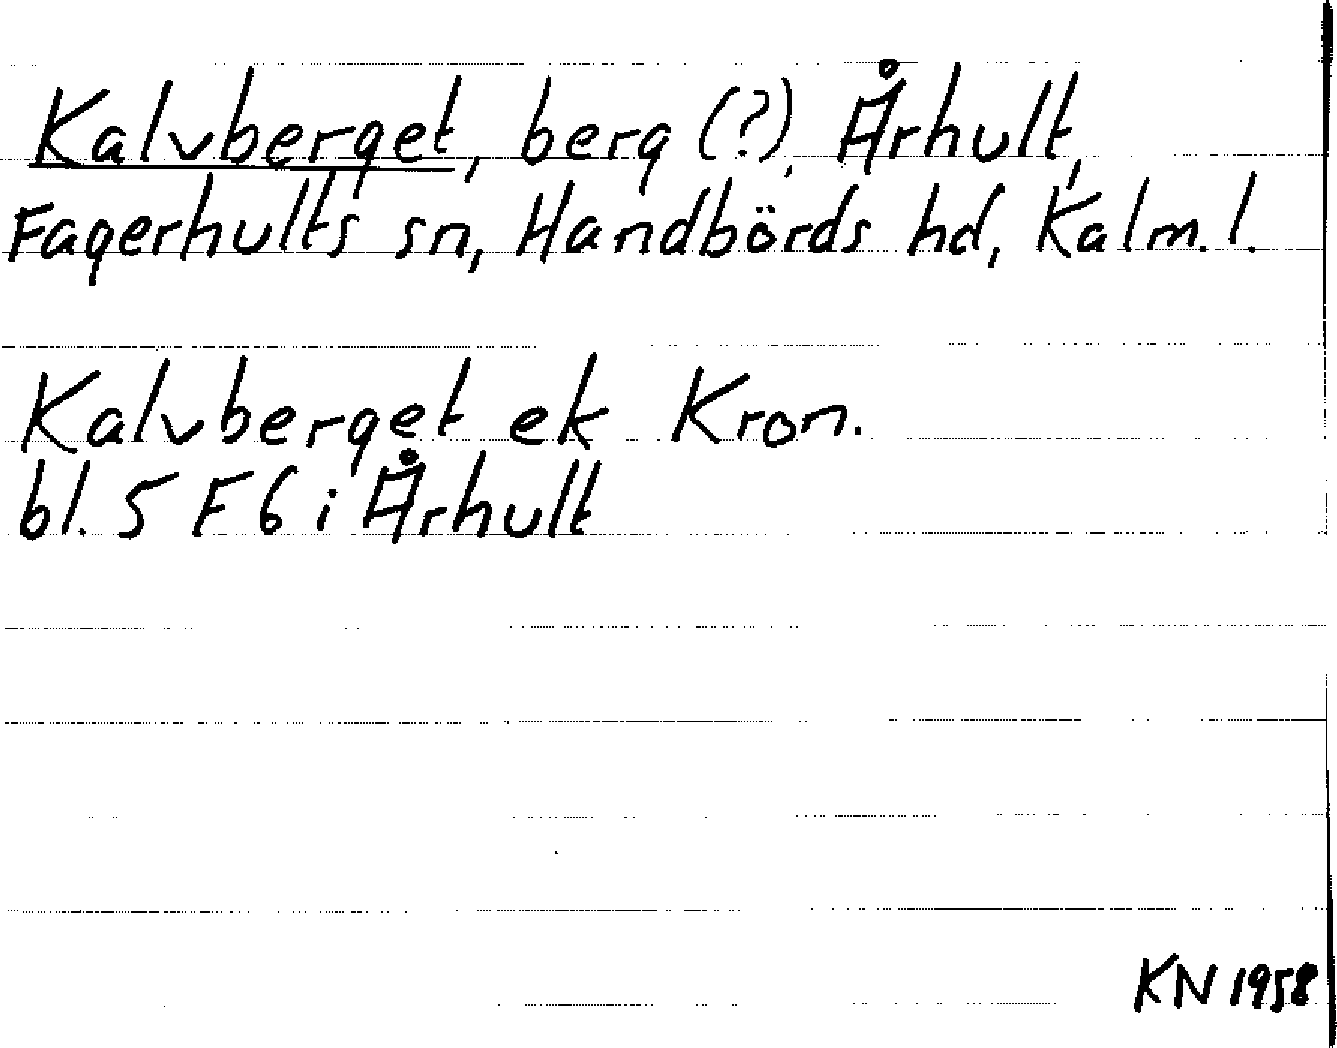 Kalvberget, berg (?), Århult,
Fagerhults sn, Handbörds hd, Kalm. l.
Kalvberget ek Kron.
bl. 5 F 6 i Århult
KN 1958